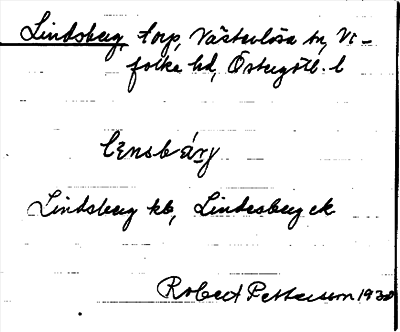 Lindsberg, torp, Västerlösa sn, Vi-
folka hd, Östergötl. l
Lindsberg kb, Lindesberg ek
Robert Petterson 1930